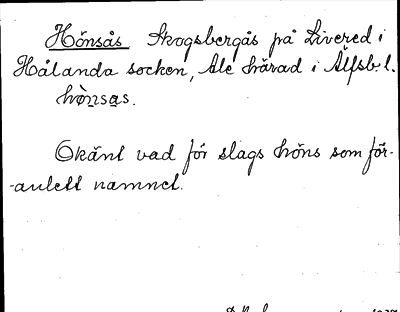 Hönsås Skogsbergås på Livered i
Hålanda socken, Ale härad i Älfsb. l.
hö̀nsas.
Okänt vad för slags höns som för-
-anlett namnet.